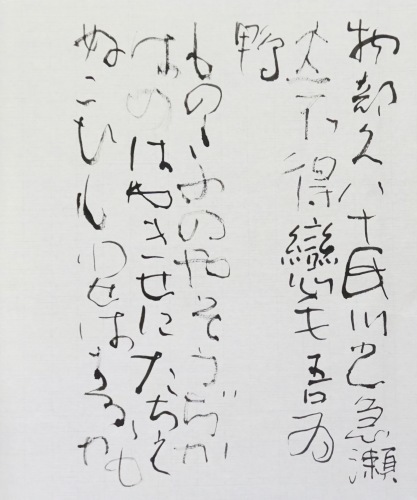 物部乃八十氏川之急瀬
立不得戀毛吾為
鴨
ものゝふのやそうぢか
はのはやきせにたちえ
ぬこひもわれはするかも